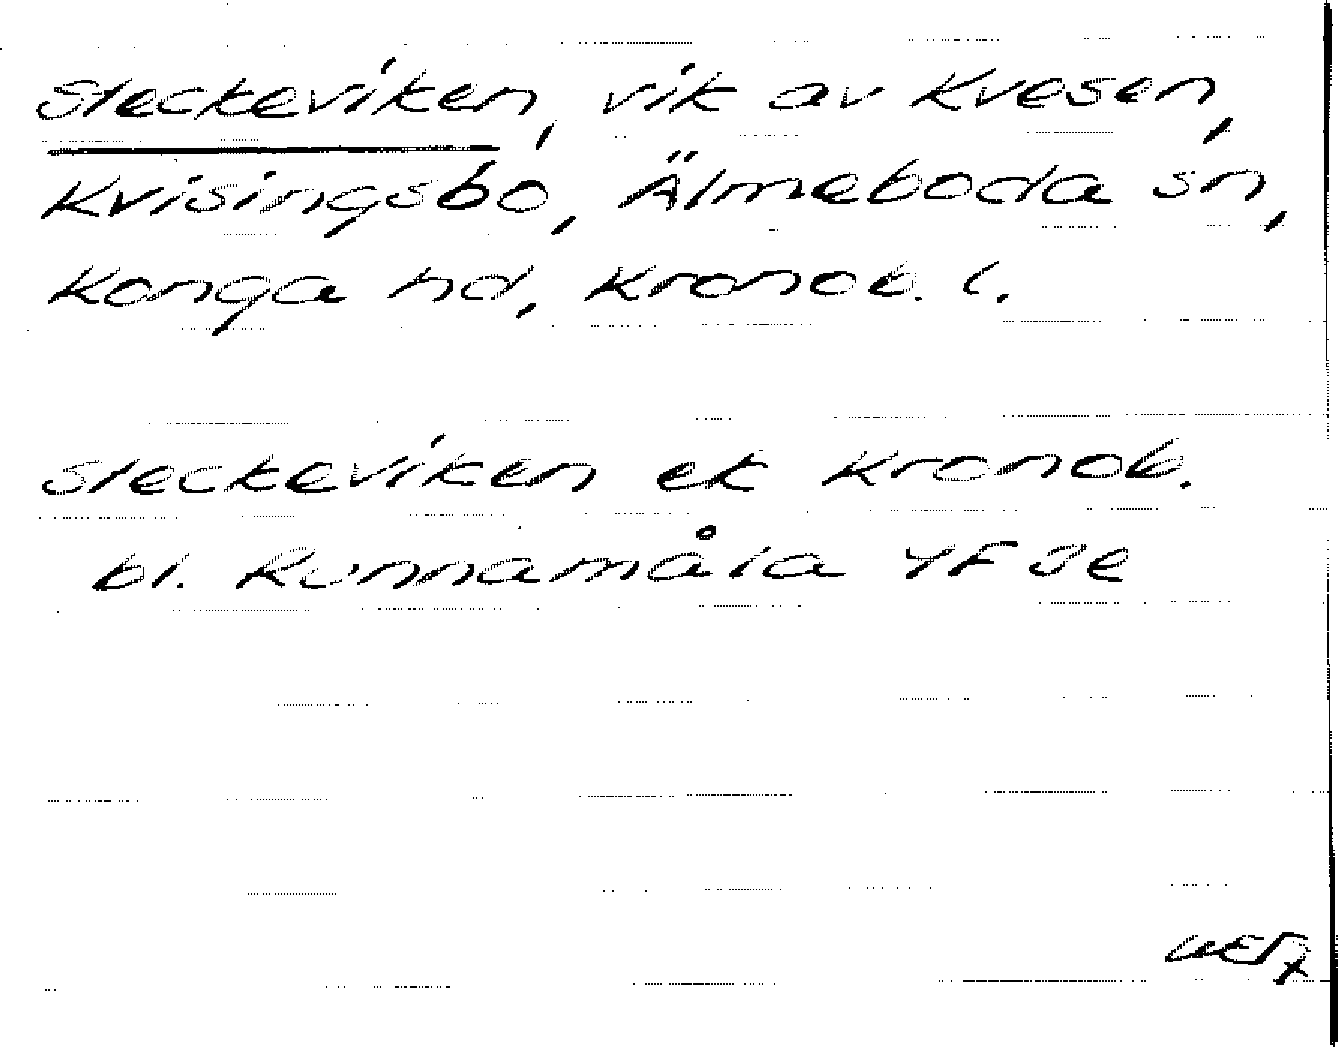 Steckeviken, vik av Kvesen,
Kvisingsbo, Älmeboda sn,
Konga hd, Kronob. l.
Steckeviken ek Kronob.
bl. Runnamåla 4F Je